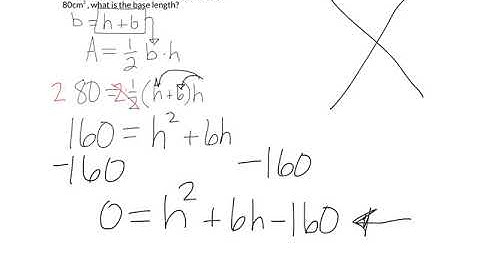 80cm², what is the base length?
b = h + 6
A = 1/2 b · h
2 80 = 2 · 1/2 (h + 6)h
160 = h² + 6h
-160 -160
0 = h² + 6h - 160